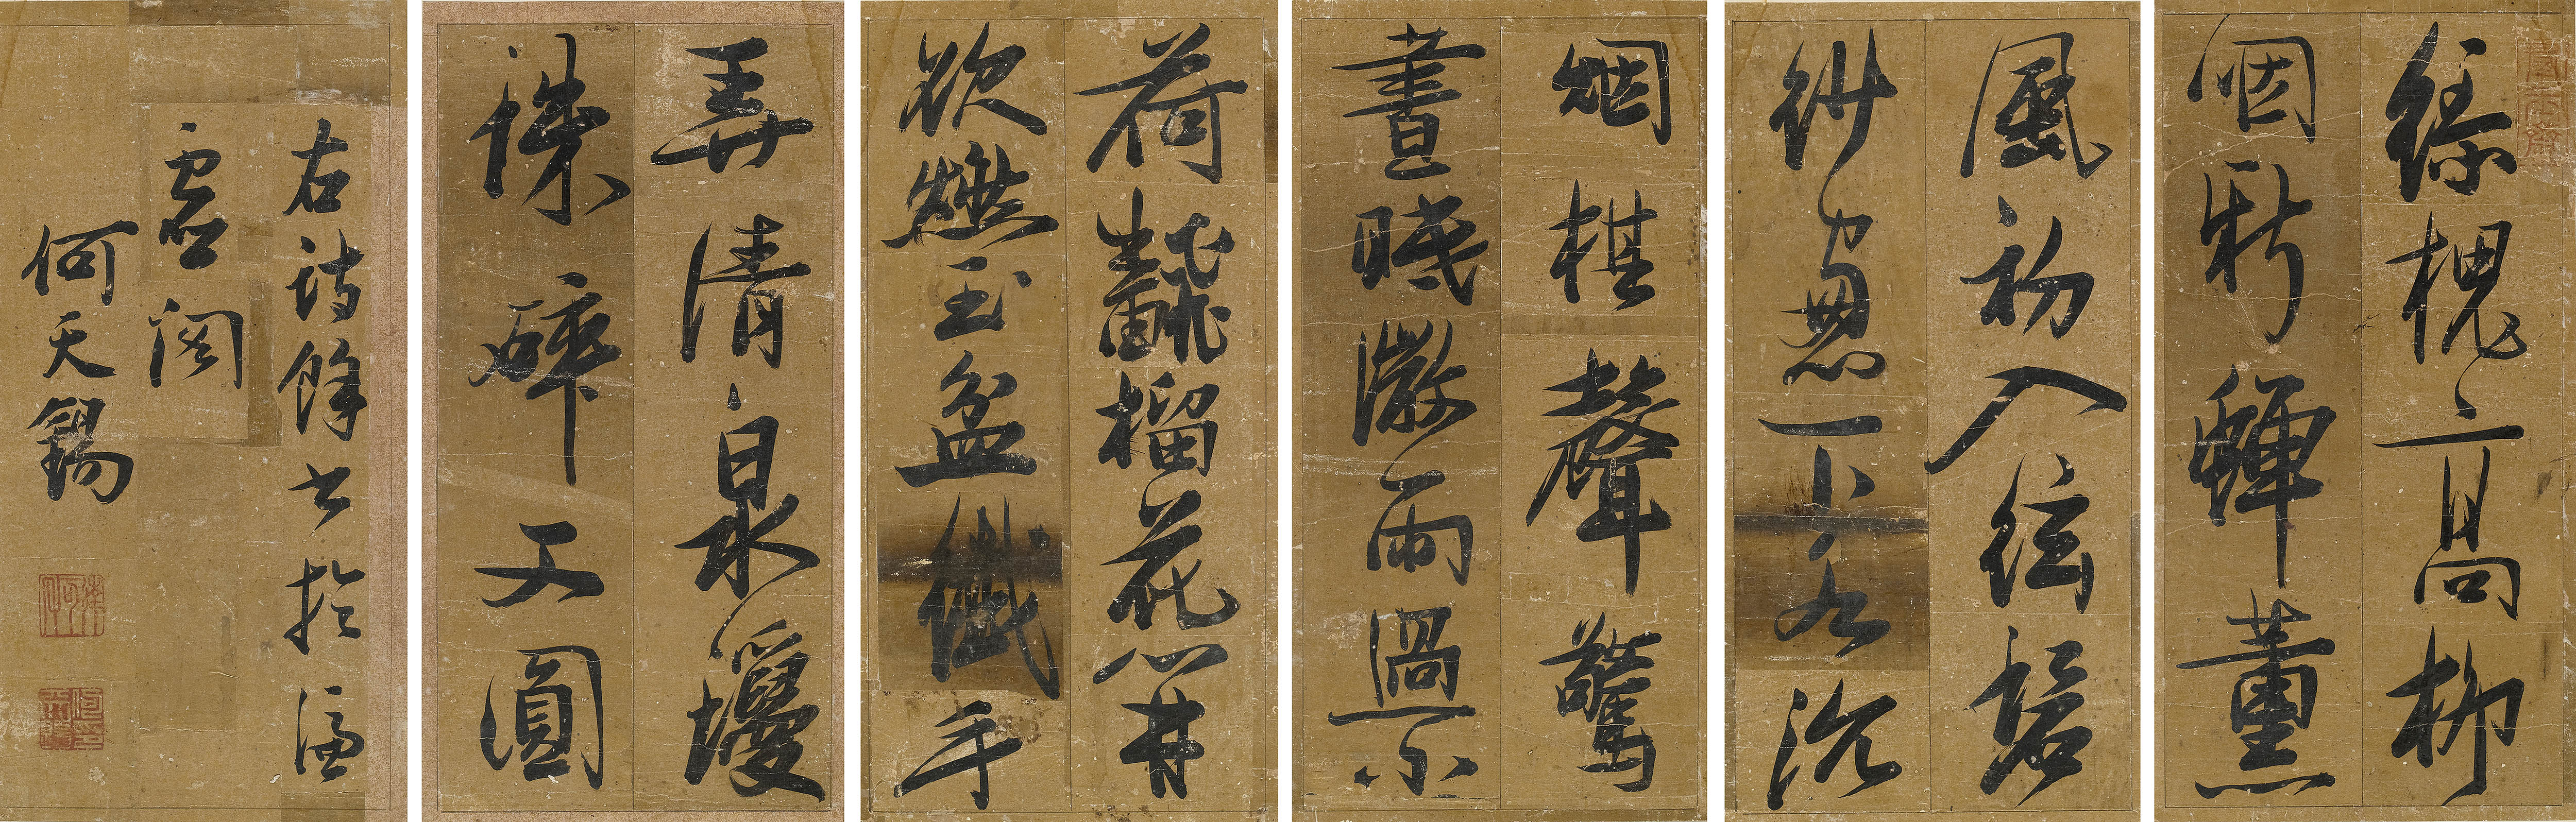 綠槐高柳
咽新蟬薰
風初入絃碧
紗窓下水沉
烟棋聲驚
晝眠微雨過小
荷飜榴花開
欲燃玉盆纖手
弄清泉瓊
珠碎又圓
右詩餘書於涵
虛閣
何天錫